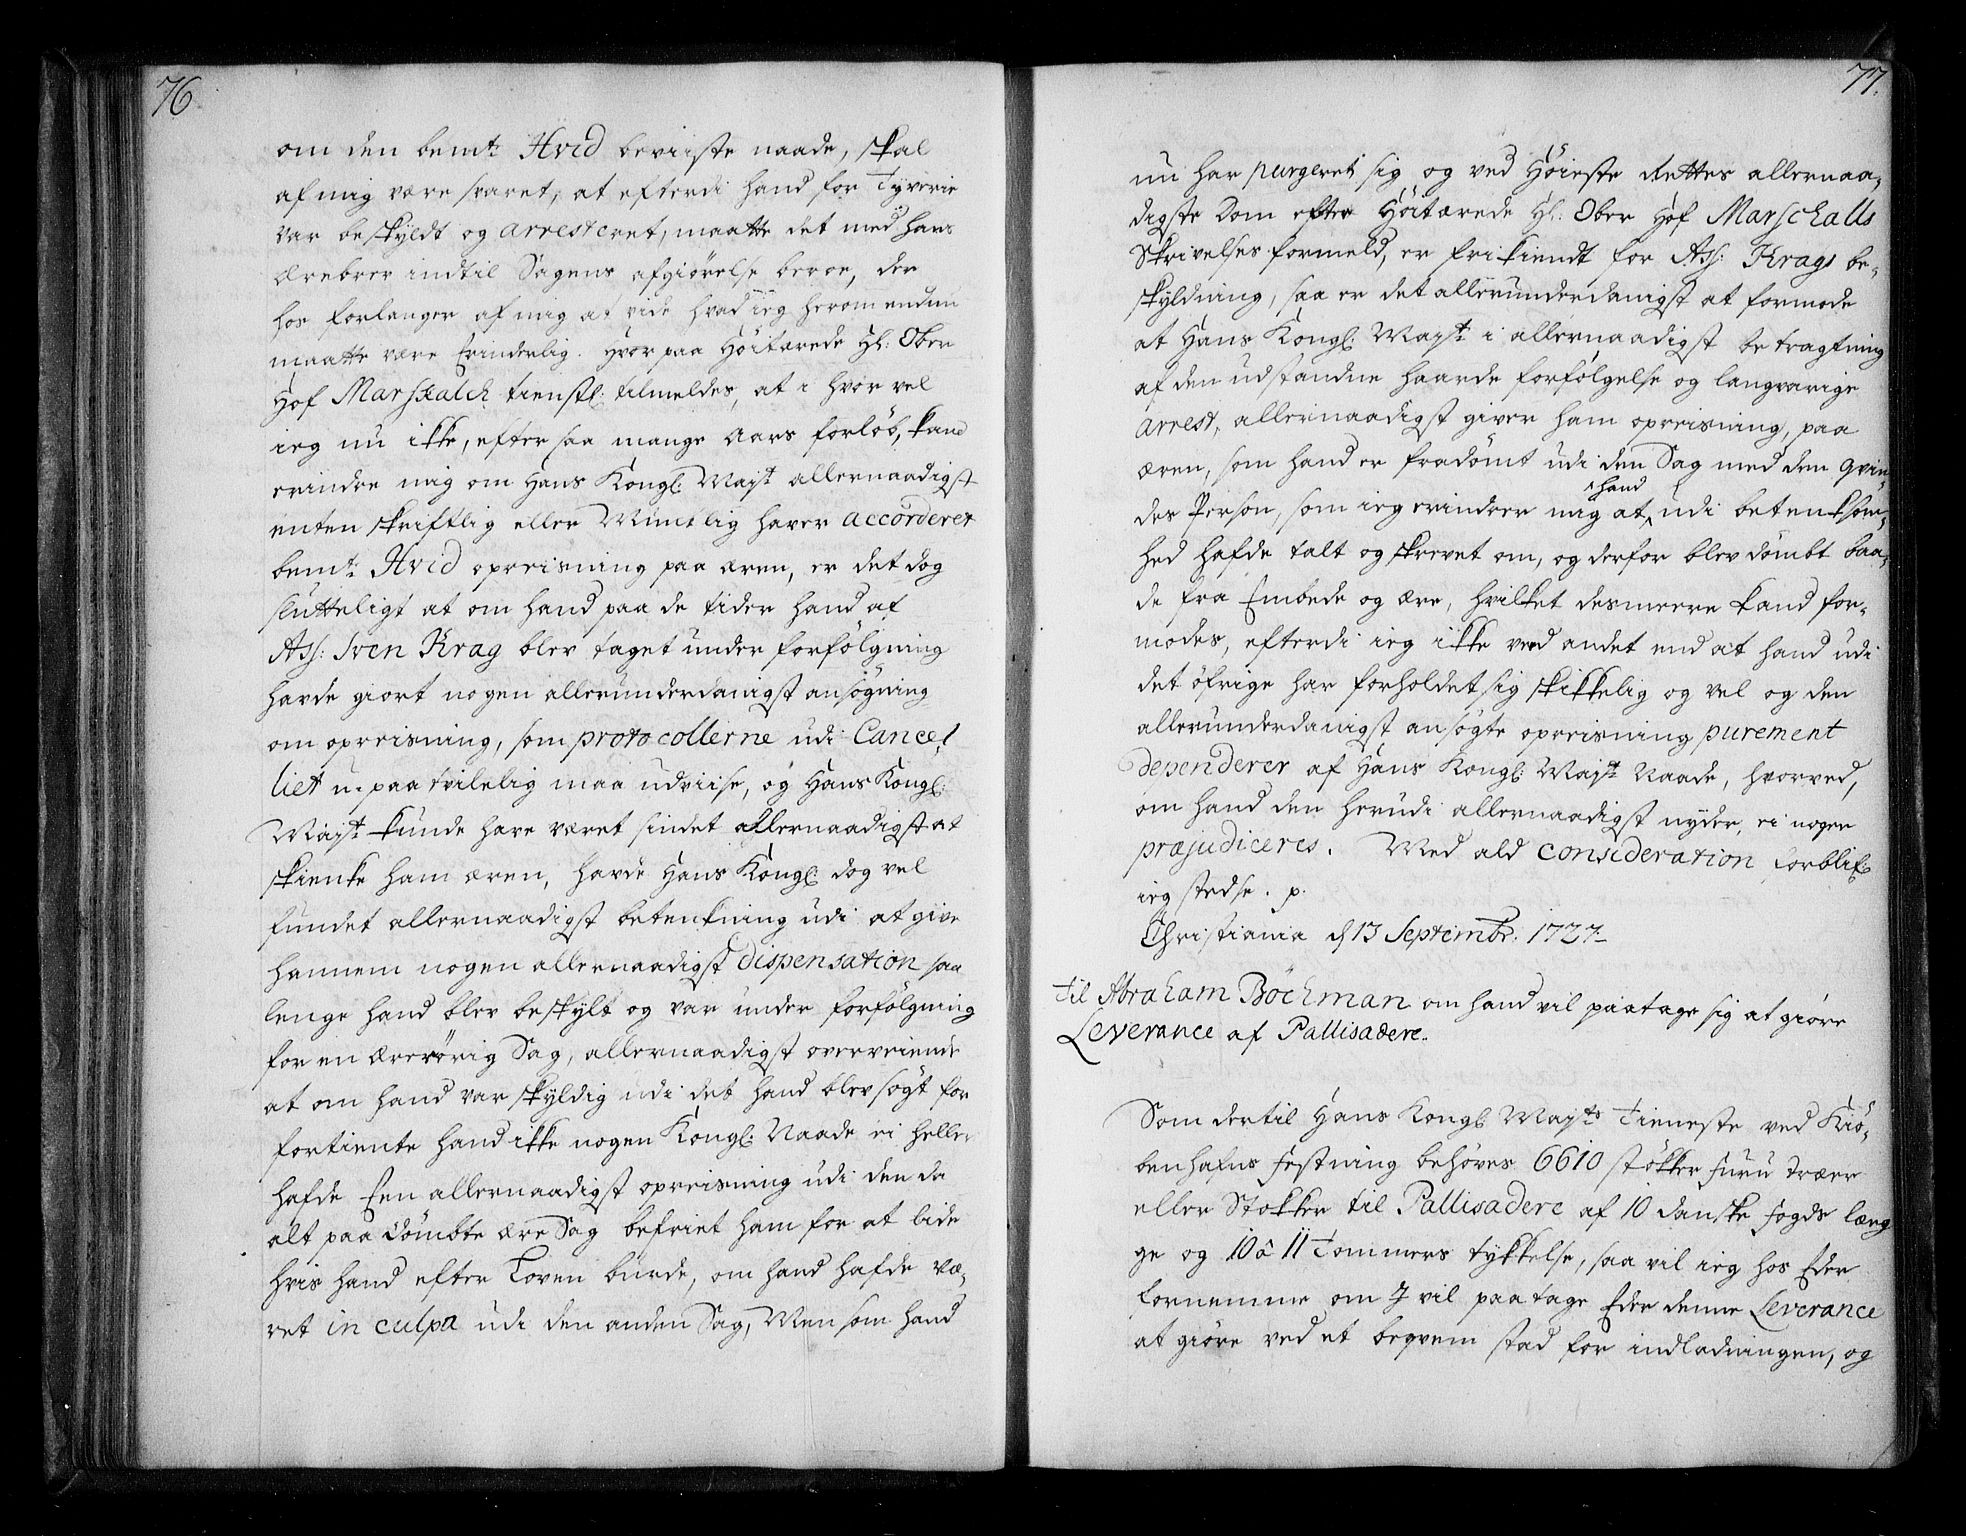 76
om den bemt: Hvid beviiste naade, skal
af mig være svaret, at efterdi hand for Tyverie
var beskyldt og arresteret, maatte det med hans
ærebrev indtil Sagens afgiørelse beroe, der
hos forlanger af mig at vide hvad ieg herom endnu
maatte være Erinderlig. Hvor paa Høitærede Hl: Ober
Hof Marskalck tienstl: tilmeldes, at i hvor vel
ieg nu ikke, efter saa mange Aars forløb, kand
erindre mig om Hans Kongl: Mayst allernaadigst
enten skriftlig eller Mundtlig haver accorderet
bemt: Hvid opreisning paa æren, er det dog
slutteligt at om hand paa de tider hand af
Ass: Sven Krag blev taget under forfølgning
hafde giort nogen allerunderdanigst ansøgning
om opreisning, som protocollerne udi Cancel,
liet u-paatvilelig maa udviise, og Hans Kongl:
Mayst kunde have været sindet allernaadigst at
skienke ham æren, havde Hans Kongl: dog vel
fundet allernaadigst betenkning udi at give
hannem nogen allernaadigst dispensation saa
lenge hand blev beskylt og var under forfølgning
for en ærerørig Sag, allernaadigst overveiende
at om hand var skyldig udi det hand blev søgt for
fortiente hand ikke nogen Kongl: Naade ei heller
hafde Een allernaadigst opreisning udi den da
alt paadømbte ære Sag befriet ham for at lide
hvis hand efter Loven burde, om hand hafde væ,
ret in culpa udi den anden Sag, Men som hand
77.
nu har purgeret sig og ved Høieste Rettes allernaa,
digste Dom efter Høitærede Hl: Ober Hof Marschalls
Skrivelses formeld, er frikiendt for Ass: Krags be,
skyldning, saa er det allerunderdanigst at formode
at Hans Kongl: Mayst i allernaadigst betragtning
af den udstandne haarde forfølgelse og langvarige
arrest, allernaadigst giver ham opreisning, paa
æren, som hand er fradømt udi den Sag med dem qvin,
des Person, som ieg erindrer mig at hand udi betenksom,
hed hafde talt og skrevet om, og derfor blev dømbt baa,
de fra Embede og ære, hvilket desmeere kand for,
modes, efterdi ieg ikke veed andet end at hand udi
det øfrige har forholdet sig skikkelig og vel og den
allerunderdanigst ansøgte opreisning purement
dependerer af Hans Kongl: Mayst: Naade, hvorved,
om hand den herudi allernaadigst nyder, ei nogen
præjudiceres. Med ald consideration forblif:
ieg stedse. p.
Christiania d 13 Septembr. 1727
Til Abraham Böchman om hand vil paatage sig at giøre
Leverance af Pallisadere.
Som der til Hans Kongl Mayts Tieneste ved Kiø,
benhafns Festning behøves 6610 støkker furu træer
eller Stokker til Pallisadere af 10 danske Fods læng
ge og 10 a 11 Tommers tykkelse, saa vil ieg hos Eder
fornemme om I vil paa tage Eder denne Leverance
at giøre ved et beqvem stad for indladningen, og